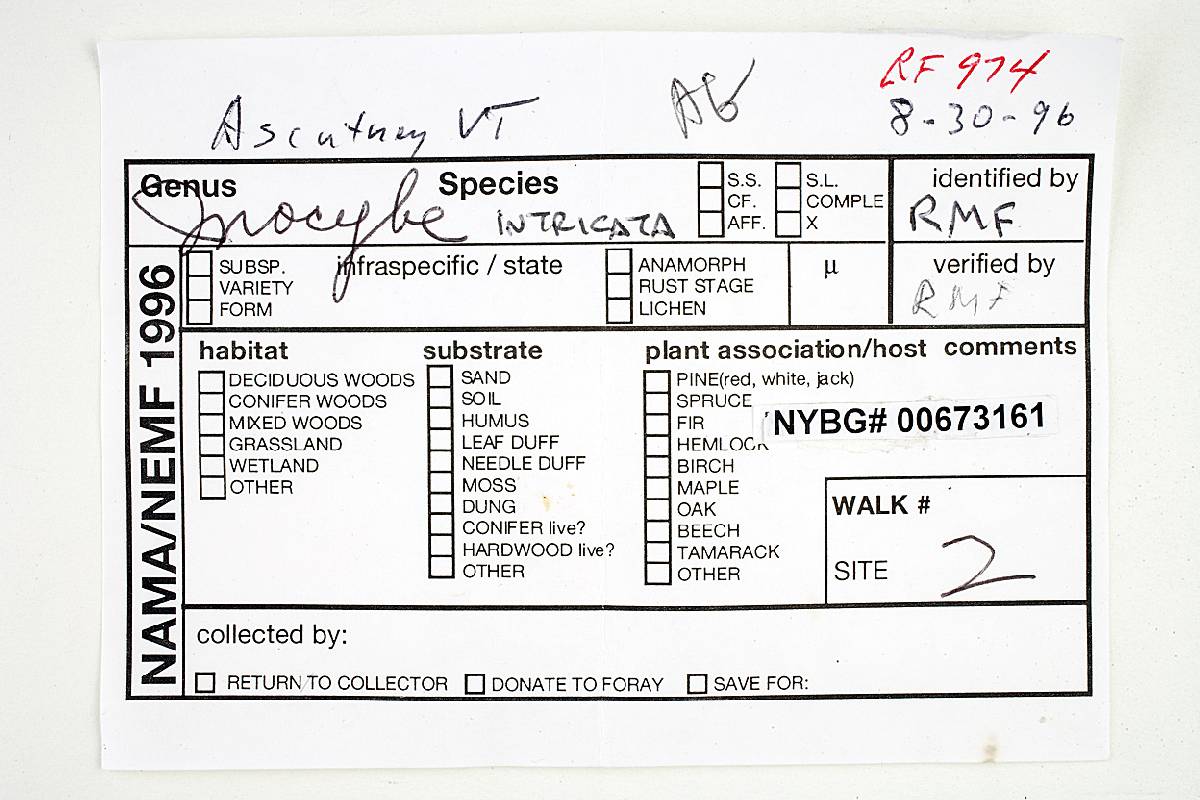 RF 974
Ascutney VT AG 8-30-96
Genus Species S.S. S.L. identified by
CF. COMPLE
AFF. X
Inocybe INTRICATA RMF
SUBSP. infraspecific / state ANAMORPH µ verified by
VARIETY RUST STAGE
FORM LICHEN RMF
NAMA/NEMF 1996
habitat
DECIDUOUS WOODS
CONIFER WOODS
MIXED WOODS
GRASSLAND
WETLAND
OTHER
substrate
SAND
SOIL
HUMUS
LEAF DUFF
NEEDLE DUFF
MOSS
DUNG
CONIFER live?
HARDWOOD live?
OTHER
plant association/host comments
PINE(red, white, jack)
SPRUCE
FIR
HEMLOCK
BIRCH
MAPLE
OAK
BEECH
TAMARACK
OTHER
NYBG# 00673161
WALK #
SITE 2
collected by:
RETURN TO COLLECTOR DONATE TO FORAY SAVE FOR: